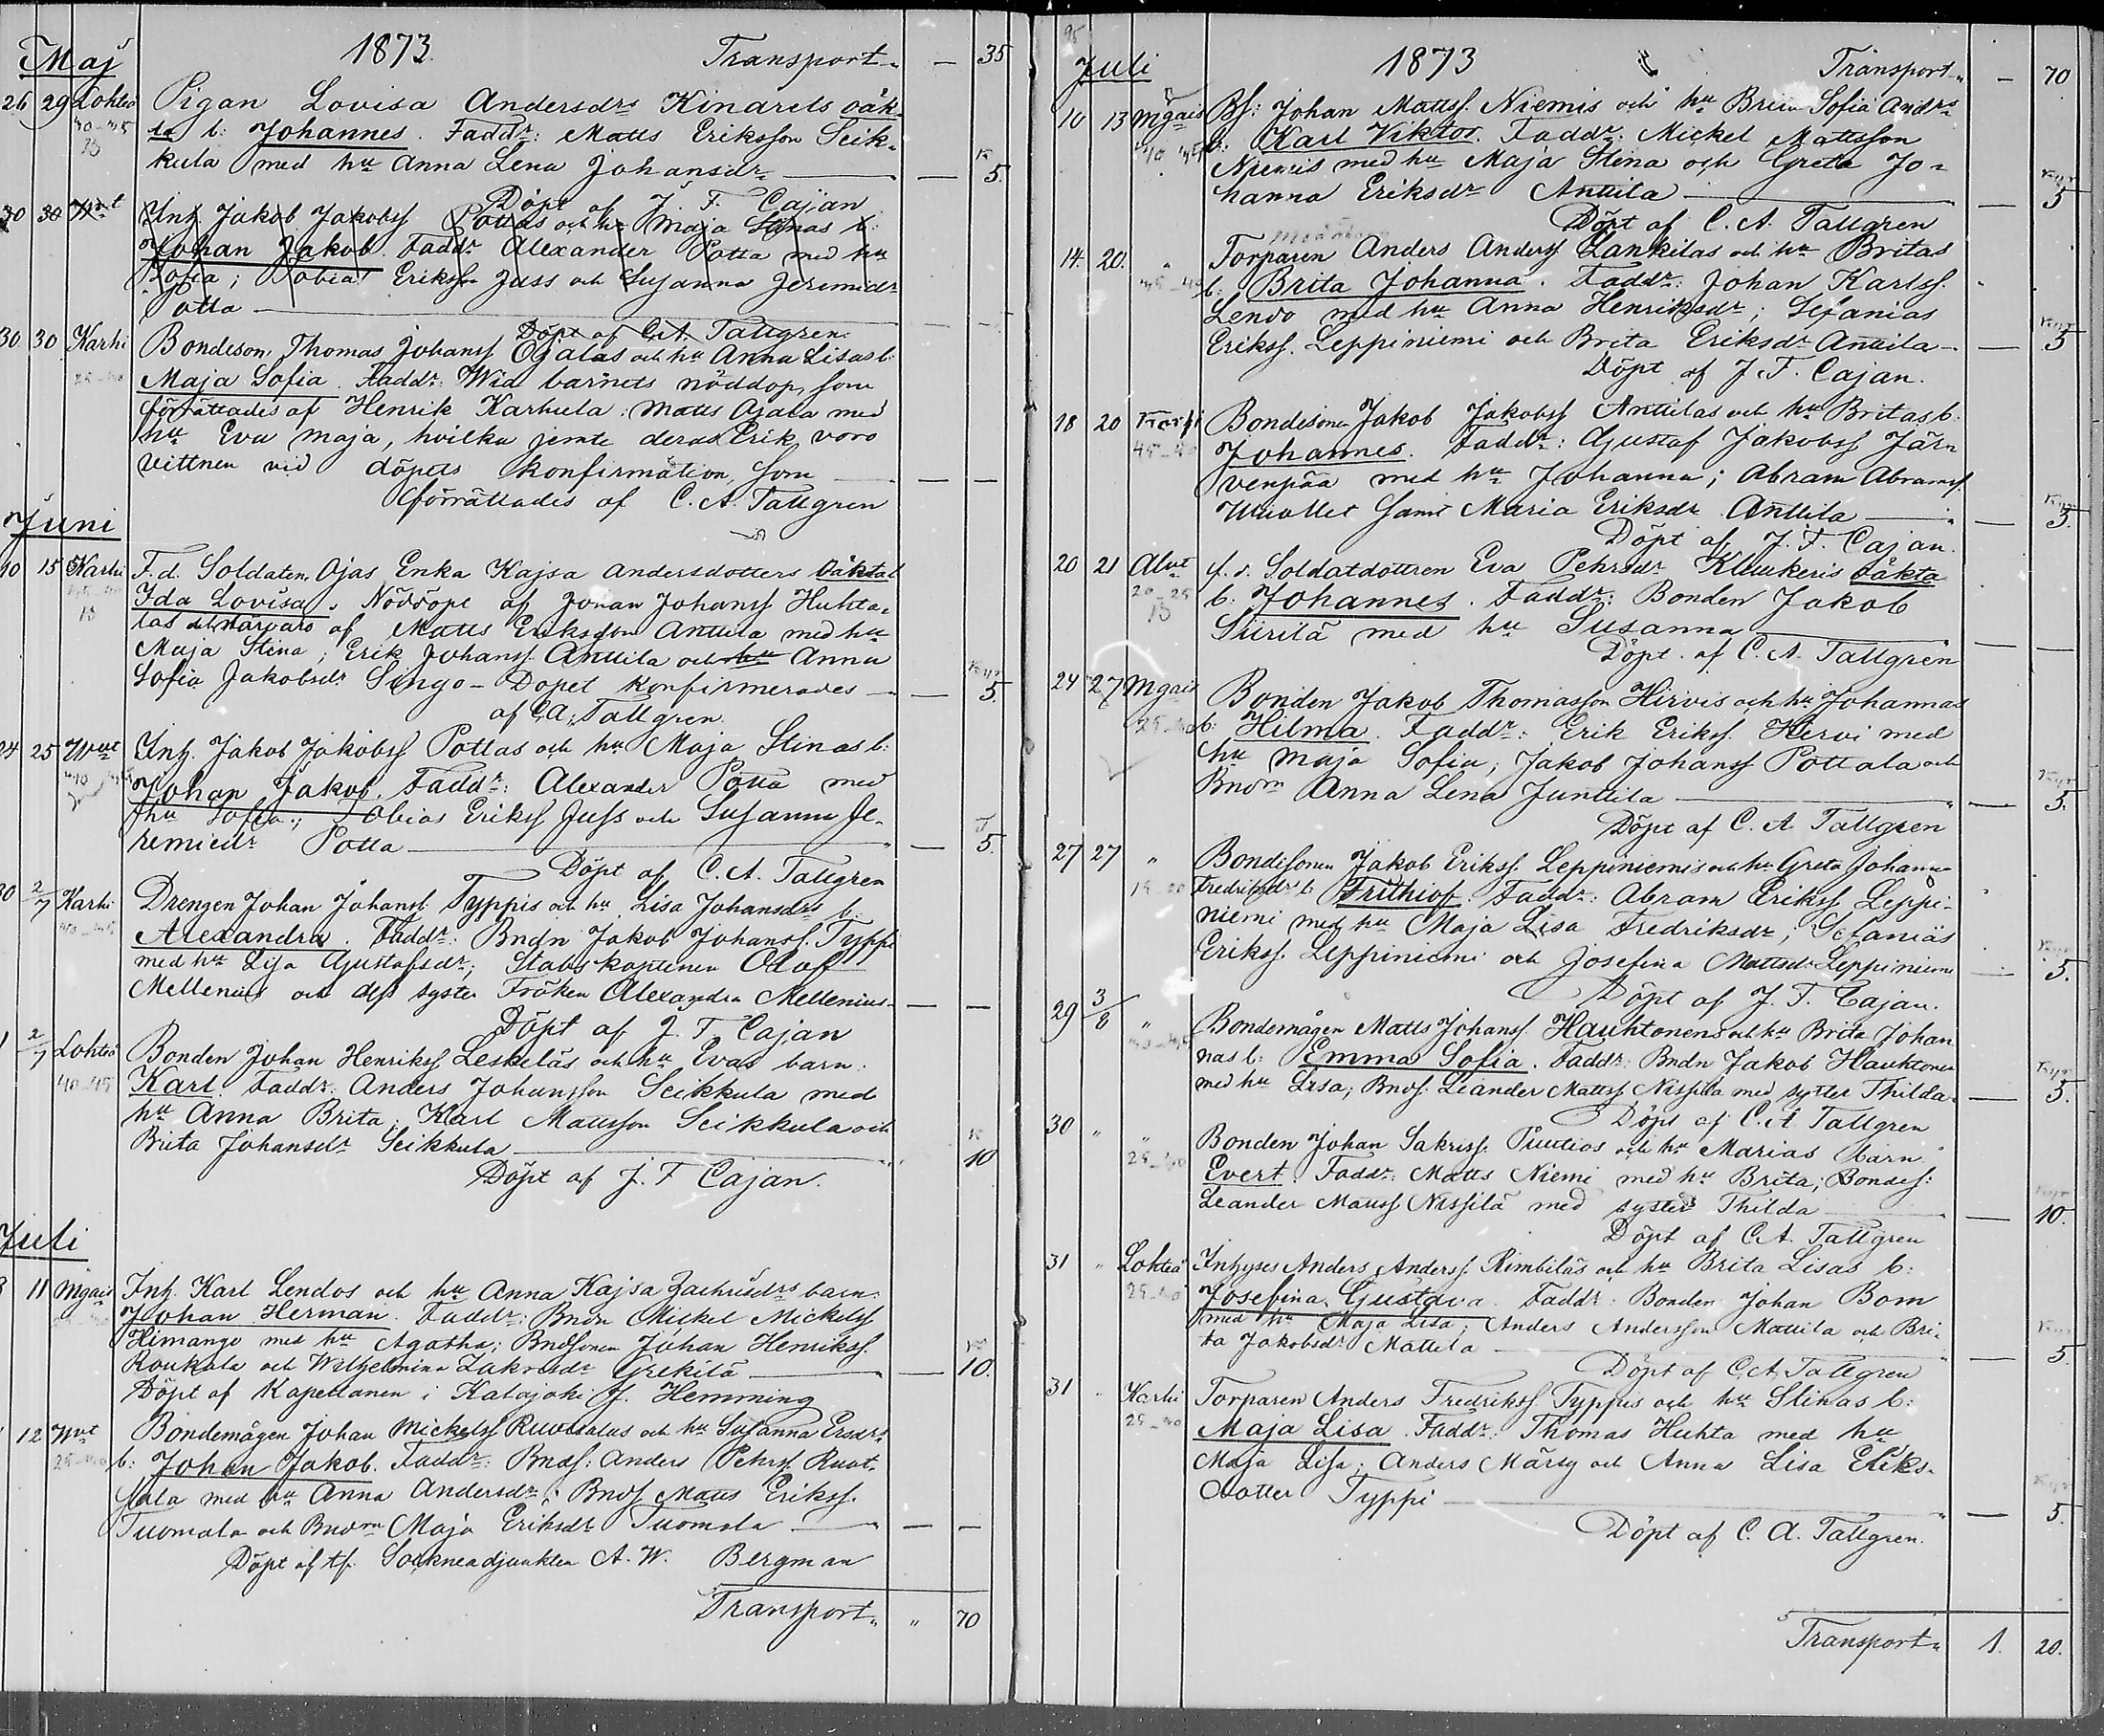 1873. Transport — 35
Maj
26 29 Lohteå Pigan Lovisa Andersdrs Kinarets oäk-
30-35 ta b: Johannes. Faddr: Matts Eriksson Seik-
kula med hu Anna Lena Johansdr — 5.
Döpt af J. F. Cajan
30 30 Ypt Inh. Jakob Jakobss Pottas och hu Maja Stinas b:
Johan Jakob. Faddr Alexander Potta med hu
Sofia; Tobias Erikss Juss och Susanna Jeremidr
Potta —
Döpt af C. A. Tallgren.
30 30 Karhi Bondeson Thomas Johanss Ojalas och hu Anna Lisas b:
25-30 Maja Sofia. Faddr: Wid barnets nöddop, som
förrättades af Henrik Karhula: Matts Ojala med
hu Eva Maja, hvilka jemte deras Erik, voro
vittnen vid döpets konfirmation, som — —
förrättades af C. A. Tallgren
Juni
10 15 Karhi F.d. Soldaten Ojas Enka Kajsa Andersdotters oäkta b
Ida Lovisa. Nöddöpt af Johan Johanss Huhta-
las i närvaro af Matts Eriksson Anttila med hu
Maja Stina; Erik Johanss. Anttila och hu Anna
Sofia Jakobsdr Singo - Dopet konfirmerades — 5.
af C. A. Tallgren.
24 25 Ypt Inh. Jakob Jakobss Pottas och hu Maja Stinas b:
Johan Jakob. Faddr: Alexander Potta med
hu Sofia; Tobias Erikss Juss och Susanna Je-
remiedr Potta — 5.
Döpt af C. A. Tallgren
30 2/7 Karhi Drengen Johan Johanss. Typpis och hu Lisa Johansdrs b.
Alexandra. Faddr: Bndn Jakob Johanss. Typpi
med hu Lisa Gustafsdr; Stabskaptenen Olof
Mellenius och dess syster Fröken Alexandra Mellenius — —
Döpt af J. F. Cajan
1 2/7 Lohteå Bonden Johan Henrikss Leskeläs och hu Evas barn:
40-45 Karl. Faddr: Anders Johansson Seikkula med
hu Anna Brita; Karl Mattsson Seikkula och
Brita Johansdr Seikkula — 10
Döpt af J. F Cajan.
Juli
3 11 Mgais Inh. Karl Lendos och hu Anna Kajsa Zachrisdrs barn:
Johan Herman. Faddr: Bndn Mickel Mickelss
Himango med hu Agatha; Bndsonen Johan Henrikss.
Roukala och Wilhelmina Zakrisdr Grekilä — 10.
Döpt af Kapellanen i Kalajoki J. Hemming
12 Ypt Bondemågen Johan Mickelss Ruotsalas och hu Susanna Ersdrs
25-30 b: Johan Jakob. Faddr: Bnds: Anders Pehrss Ruot-
sala med hu Anna Andersdr; Bnds Matts Erikss.
Tuomala och Bndrn Maja Eriksdr Tuomala — —
Döpt af tf. Sockneadjunkten A. W. Bergman
Transport „ 70
1873 Transport — 70
Juli
10 13 Mgais Bs: Johan Mattss. Niemis och hu Brita Sofia Andrs
b: Karl Viktor. Faddr: Mickel Mattsson
Niemis med hu Maja Stina och Greta Jo-
hanna Eriksdr Anttila — 5
Döpt af C. A. Tallgren
14. 20. „ Torparen Anders Anderss Lankilas och hu Britas
b: Brita Johanna. Faddr: Johan Karlss.
Lendo med hu Anna Henriksdr; Sefanias
Erikss. Leppiniemi och Brita Eriksdr Anttila — 5
Döpt af J. F. Cajan.
18 20 Karhi Bondesonen Jakob Jakobss Anttilas och hu Britas b:
Johannes. Faddr: Gustaf Jakobss Jär-
venpää med hu Johanna; Abram Abramss.
samt Maria Eriksdr Anttila — 5.
Döpt af J. F. Cajan.
20 21 Alvt f. d. Soldatdottren Eva Pehrsdr Klunkeris oäkta
20-25 b: Johannes. Faddr: Bonden Jakob
Siirilä med hu Susanna — —
Döpt af C. A. Tallgren
24 27 Mgais Bonden Jakob Thomasson Hirvis och hu Johannas
b: Hilma. Faddr: Erik Erikss Hirvi med
hu Maja Sofia; Jakob Johanss Pottala och
Bndrn Anna Lena Junttila — 5.
Döpt af C. A. Tallgren
27 27 „ Bondesonen Jakob Erikss. Leppiniemis och hu Greta Johanna
Fredriksdrs b Frithiof. Faddr: Abram Erikss Leppi-
niemi med hu Maja Lisa Fredriksdr; Sefanias
Erikss. Leppiniemi och Josefina Mattsdr Leppiniemi — 5.
Döpt af J. F. Cajan.
29 3/8 „ Bondemågen Matts Johanss. Hauhtonens och hu Brita Johan
nas b: Emma Sofia. Faddr: Bndn Jakob Hauhtonen
med hu Lisa; Bnds: Leander Mattss Nissilä med syster Thilda. — 5.
Döpt af C. A Tallgren
30 „ „ Bonden Johan Sakriss. Puutios och hu Marias barn
Evert. Faddr: Matts Niemi med hu Brita; Bondes:
Leander Mattss Nissilä med syster Thilda — 10.
Döpt af C. A. Tallgren
31 „ Lohteå Inhyses Anders Anderss. Rimbiläs och hu Brita Lisas b:
Josefina Gustava. Faddr: Bonden Johan Bom
med hu Maja Lisa; Anders Andersson Mattila och Bri-
ta Jakobsdr Mattila — 5.
Döpt af C. A. Tallgren
31 Karhi Torparen Anders Fredrikss Typpis och hu Stinas b:
Maja Lisa. Faddr: Thomas Huhta med hu
Maja Lisa; Anders Märsy och Anna Lisa Eriks-
dotter Typpi — 5.
Döpt af C. A. Tallgren.
Transport 1. 20.